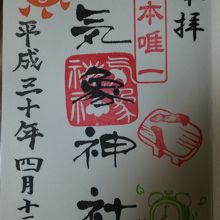 拝
本唯一
気象神社
平成三十年四月十